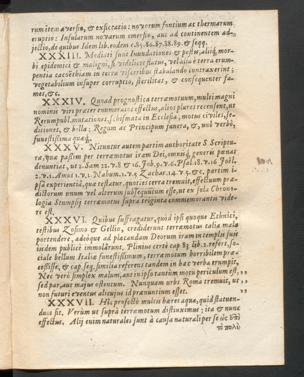 rum item aversio, & exsiccatio: novorum fontium ac thermarum
eruptio: Insularum novarum emersio, aut ad continentem ad-
jectio, de quibus Idem lib. eodem c. 85. 86. 87. 88. 89. & seqq.
XXXIII. Medicis sunt Inundationes & pestis, aliiq; mor-
bi epidemici & maligni, si videlicet flatus, velut ex terræ erum-
pentia cacoëthiam in terræ visceribus stabulando contraxerint;
vegetabilium insuper corruptio, sterilitas, & consequenter fa-
mes, &c.
XXXIV. Quad prognostica terræmotuum, multi magni
nominis viri præter enumeratos effectus, alios plures recensent, ut
Rerumpubl. mutationes, schismata in Ecclesia, motus civiles, se-
ditiones, & bella: Regum ac Principum funera, &, uno verbo,
funestissima quæq;.
XXXV. Nituntur autem partim authoritate S. Scriptu-
ræ, quæ passim per terræmotus iram Dei, omniq; genere pœnas
denuntiat, ut 2. Sam. 22. v. 8 Job. 9. v. 6. Psal. 18. v. 16 Joël.
2. v. 1. Amos 1. v. 1. Nahum. 1. v. 5 Zachar. 14. v. 5. &c. partim i-
psâ experientiâ, quæ testatur, quoties terra tremuit, effectuum præ-
dictorum unum vel alterum subsequutum esse, ut ex sola Chrono-
logia Stumpfij terræmotus supra triginta commemorantis vide-
re est.
XXXVI. Quibus suffragatur, quod ipsi quoque Ethnici,
testibus Zosimo & Gellio, crediderunt terræmotus talia mala
portendere, adeoque ad placandam Deorum iram in templis sup-
iisdem publicè immolârunt. Plinius certè cap. 83 lib. 2. refert, so-
ciale bellum Italiæ funestissimum, terræmotum horribilem præ-
cessisse, & cap. seq. similia referens tandem in hæc verba erumpit,
Nec verò simplex malum, aut in ipso tantùm motu periculum est, „
sed par, aut majus ostentum. Nunquam urbs Roma tremuit, ut „
non futuri eventus alicujus id prænuntium esset. „
XXXVII. Hîc profectò multis hæret aqua, quid statuen-
dum sit. Verùm ut suprà terræmotum distinximus; ita & nunc
effectus. Alij enim naturales sunt à causa naturali per se ὡς ἐπὶ
τὸ πολὺ